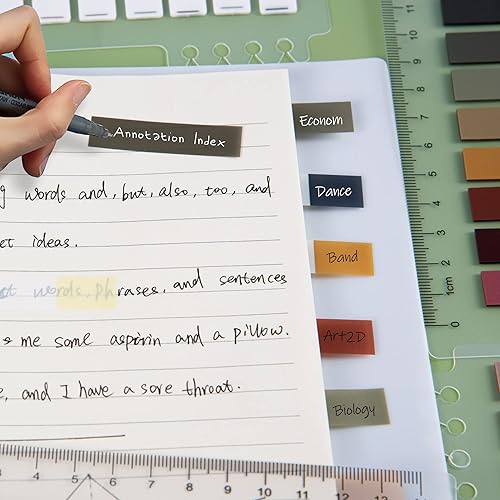 Annotation Index
words and, but, also, too, and
ideas.
words, phrases, and sentences
me some aspirin and a pillow.
and I have a sore throat.
Econom
Dance
Band
Art2D
Biology
5
4
3
2
1cm
0
1 2 3 4 5 6 7 8 9 10 11 12 13